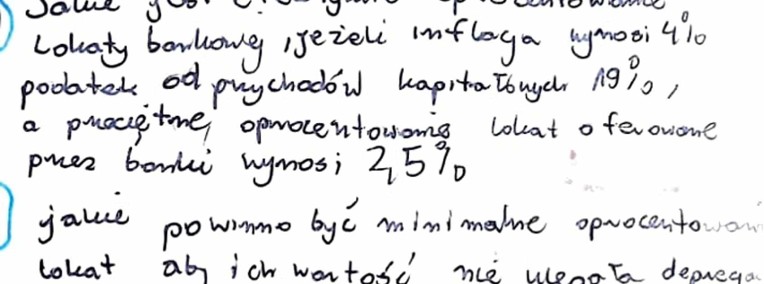 Jakie jest oprocentowanie
Lokaty bankowej, jeżeli inflacja wynosi 4%
podatek od przychodów kapitałowych 19%,
a przeciętne oprocentowanie lokat oferowane
przez banki wynosi 2,5%
jakie powinno być minimalne oprocentowan
lokat aby ich wartość nie ulegała deprecja